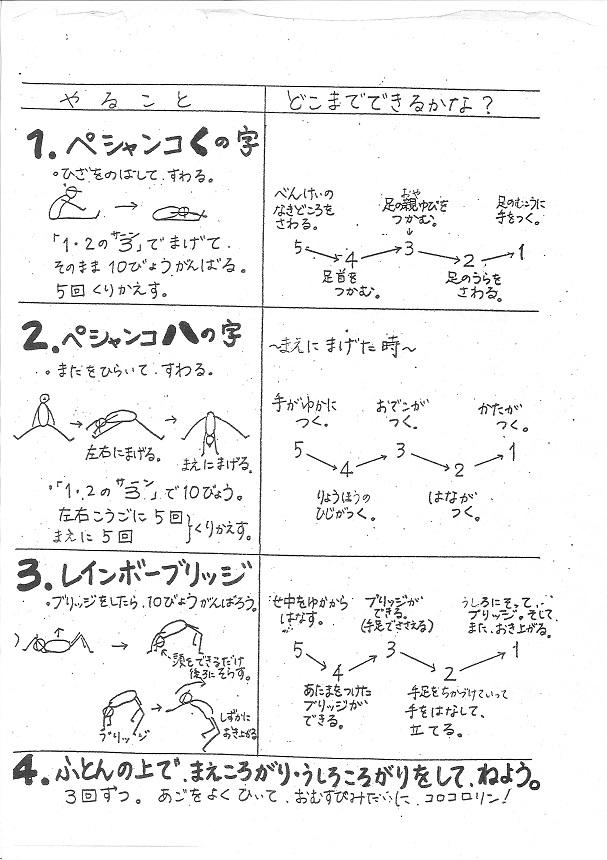 やること
どこまでできるかな？
1.ペシャンコくの字
・ひざをのばして、すわる。
「1・2の3(サーン)」でまげて、
そのまま10びょうがんばる。
5回くりかえす。
べんけいの
なきどころを
さわる。
足の親(おや)ゆびを
つかむ。
足のむこうに
手をつく。
5 4 3 2 1
足首を
つかむ。
足のうらを
さわる。
2.ペシャンコハの字
・まだをひらいて、すわる。
左右にまげる。
まえにまげる。
・「1・2の3(サーン)」で10びょう。
左右こうごに5回
まえに5回
くりかえす。
〜まえにまげた時〜
手がゆかに
つく。
おでこが
つく。
かたが
つく。
5 4 3 2 1
りょうほうの
ひじがつく。
はなが
つく。
3.レインボーブリッジ
・ブリッジをしたら、10びょうがんばろう。
頭をできるだけ
後ろにそらす。
ブリッジ
しずかに
おき上がる
せ中をゆかから
はなす。
ブリッジが
できる。
(手足でささえる)
うしろにそって、
ブリッジ。そして
また、おき上がる。
5 4 3 2 1
あたまをつけた
ブリッジが
できる。
手足をちかづけていって
手をはなして、
立てる。
4.ふとんの上で、まえころがり・うしろころがりをして、ねよう。
3回ずつ。あごをよくひいて、おむすびみたいに、コロコロリン！